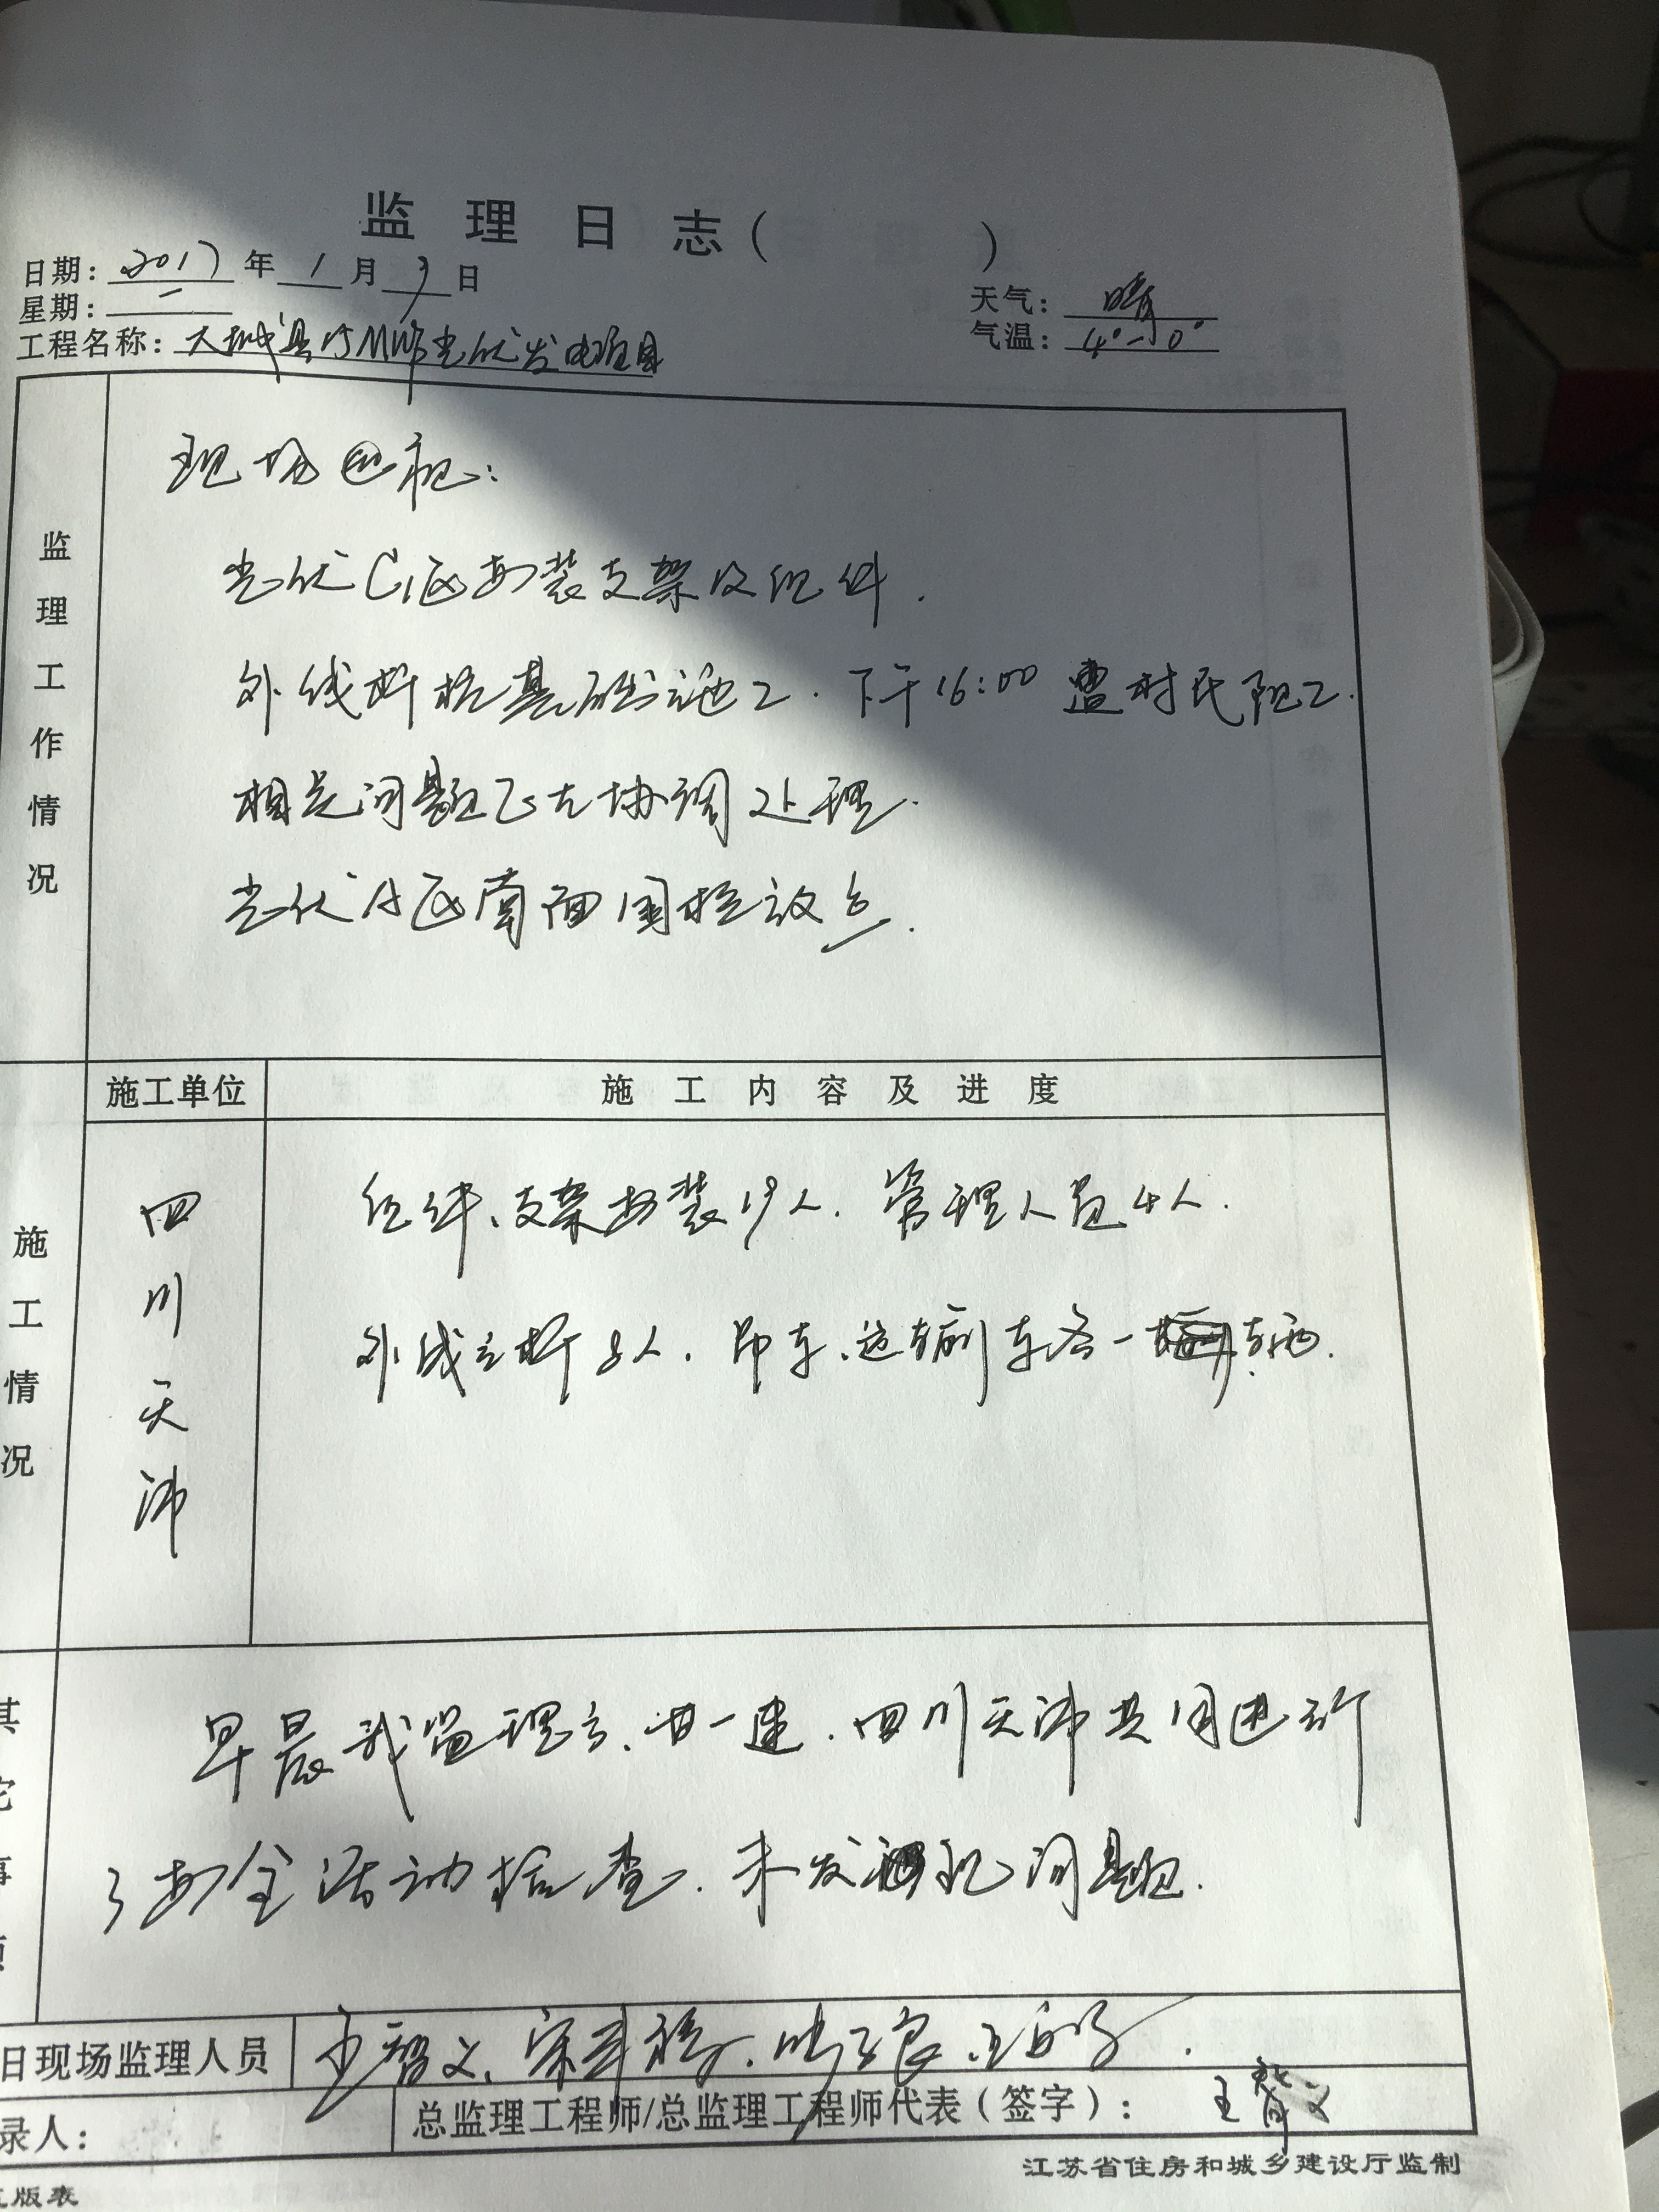 监理日志（　　）
日期：2017年1月9日
星期：一
天气：晴
工程名称：大城县15MW光伏发电项目
气温：4°-10°
监理工作情况
现场巡视：
光伏C1区安装支架及组件.
外线杆桩基础施工. 下午16:00遭村民阻工.
相关问题已在协调处理.
光伏A区南面围栏放点.
施工单位
施工内容及进度
施工情况
四川天沛
组件、支架安装19人. 管理人员4人.
外线立杆8人. 吊车、运输车各一辆.
其它事项
早晨我监理方、廿一建、四川天沛共同进行
了安全活动检查. 未发现问题.
日现场监理人员
王智义、
总监理工程师/总监理工程师代表（签字）：王智义
录人：
江苏省住房和城乡建设厅监制
版表